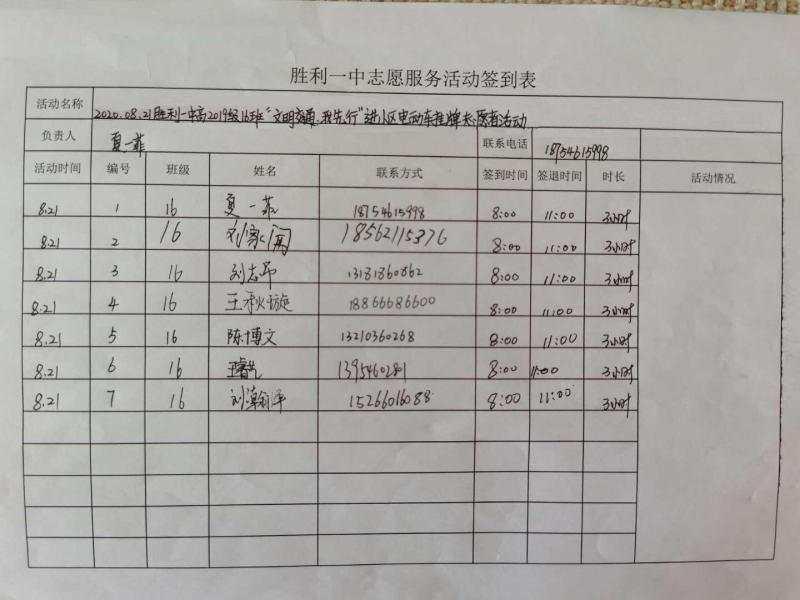 胜利一中志愿服务活动签到表
活动名称 2020.08.21胜利一中高2019级16班"文明交通,我先行"进小区电动车挂牌志愿者活动
负责人 夏一菲 联系电话 18754615998
活动时间 编号 班级 姓名 联系方式 签到时间 签退时间 时长 活动情况
8.21 1 16 夏一菲 18754615998 8:00 11:00 3小时
8.21 2 16 刘 18562115376 8:00 11:00 3小时
8.21 3 16 刘志 13181860862 8:00 11:00 3小时
8.21 4 16 王秋璇 18866686600 8:00 11:00 3小时
8.21 5 16 陈博文 13210360268 8:00 11:00 3小时
8.21 6 16 8:00 11:00 3小时
8.21 7 16 刘瀚泽 15266016088 8:00 11:00 3小时